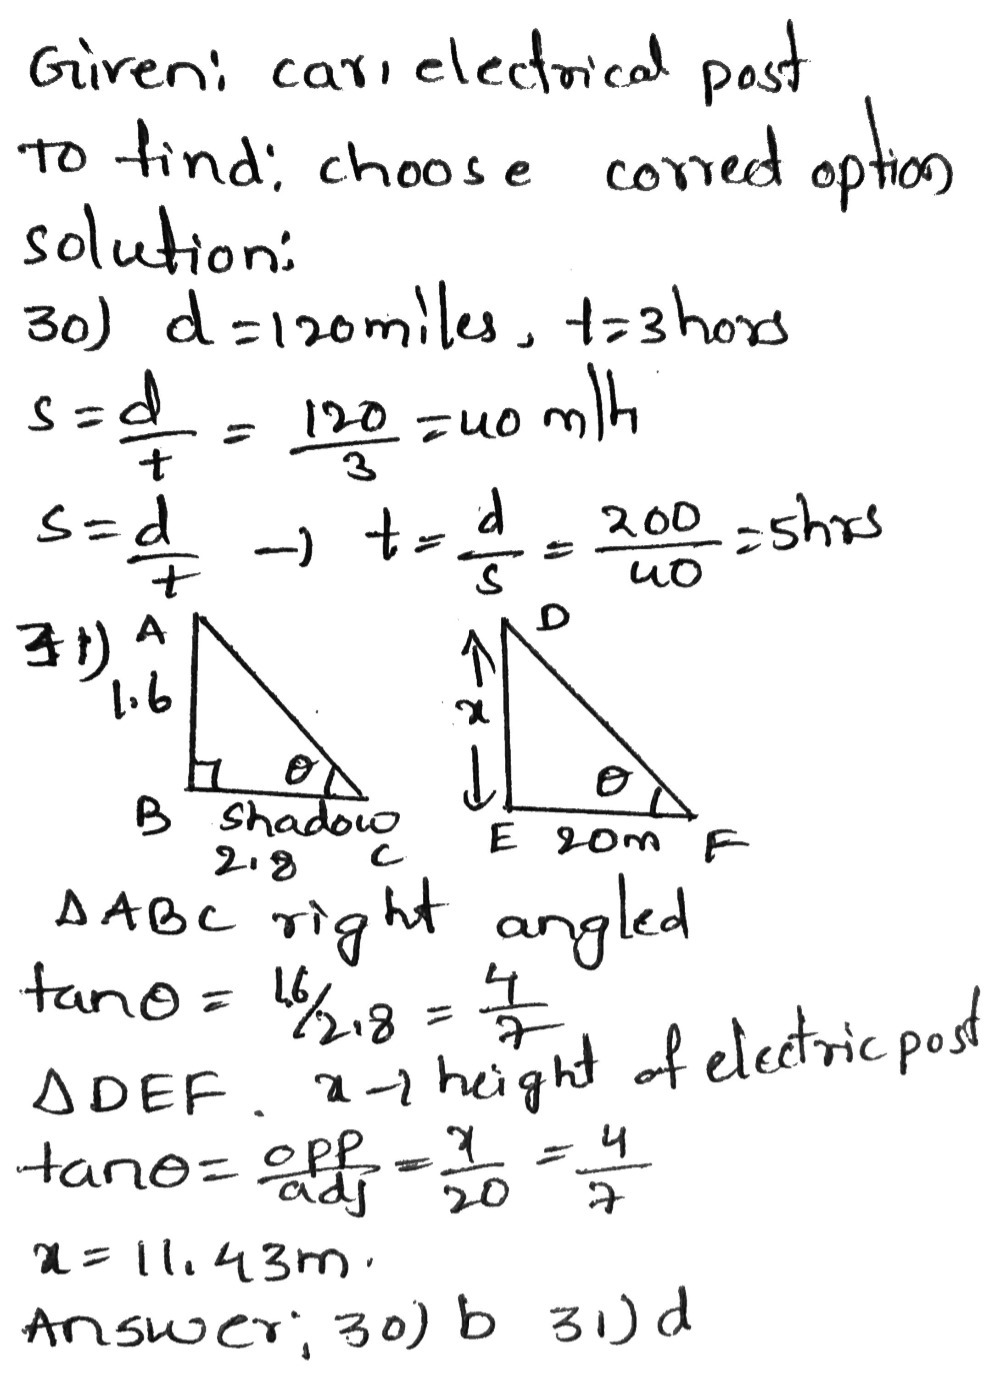 Given: car, electrical post
To find: choose correct option
solution:
30) d=120miles, t=3hors
s=d/t = 120/3 =40 m/h
s=d/t → t=d/s = 200/40 =5hrs
31) A D
1.6 x
θ θ
B shadow C E 20m F
2.8
ΔABC right angled
tanθ= 1.6/2.8 = 4/7
ΔDEF. x→ height of electric post
tanθ= opp/adj = x/20 = 4/7
x= 11.43m.
Answer; 30) b 31) d